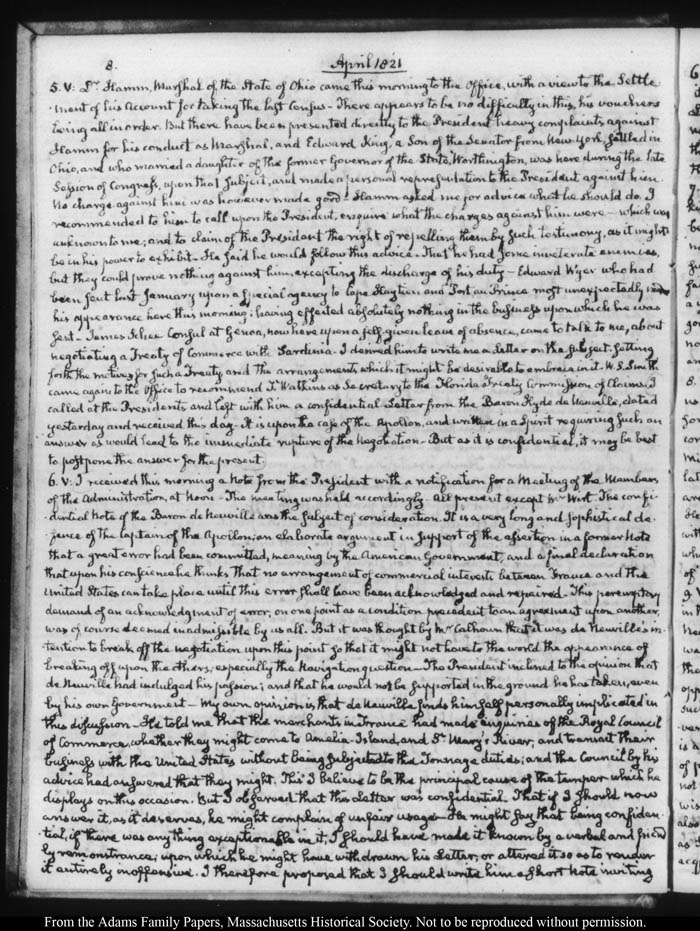 8. April 1821
5. V: Dr. Hamm, Marshal of the State of Ohio came this morning to the Office, with a view to the Settle-
ment of his Account for taking the last Census - There appears to be no difficulty in this, his vouchers
being all in order. But there have been presented directly to the President heavy complaints against
Hamm for his conduct as Marshal, and Edward King, a Son of the Senator from New-York, settled in
Ohio, and who married a daughter of the former Governor of the State, Worthington, was here during the late
Session of Congress, upon that Subject, and made a personal representation to the President against him.
No charge against him was however made good - Hamm asked me for advice what he should do. I
recommended to him to call upon the President, enquire what the charges against him were - which was
unknown to me; and to claim of the President the right of repelling them by such testimony, as it might
be in his power to exhibit - He said he would follow this advice - That he had some inveterate enemies,
but they could prove nothing against him, excepting the discharge of his duty - Edward Wyer who had
been sent last January upon a special agency to Cape Haytien and Port au Prince most unexpectedly made
his appearance here this morning; having effected absolutely nothing in the business upon which he was
sent - James Consul at Genoa, now here upon a self-given leave of absence, came to talk to me, about
negotiating a Treaty of Commerce with Sardinia - I desired him to write me a Letter on the subject. Setting
forth the motives for such a Treaty and the arrangements which it might be desirable to embrace in it. W. S. Smith
came again to the Office to recommend T. Watkins as Secretary to the Florida Treaty Commission of Claims. I
called at the Presidents and left with him a confidential Letter from the Baron Hyde de Neuville, dated
yesterday and received this day. It is upon the case of the Apollon, and written in a Spirit requiring such an
answer as would lead to the immediate rupture of the Negotiation - But as it is confidential, it may be best
to postpone the answer for the present.
6. V: I received this morning a Note from the President with a notification for a Meeting of the Members
of the Administration, at Noon - The meeting was held accordingly - All present except Mr Wirt. The confi-
dential Note of the Baron de Neuville was the subject of consideration. It is a very long and sophistical de-
fence of the Captain of the Apollon; an elaborate argument in support of the assertion in a former Note
that a great error had been committed, meaning by the American Government, and a final declaration
that upon his conscience he thinks that no arrangement of commercial interests between France and the
United States can take place until this error shall have been acknowledged and repaired. This peremptory
demand of an acknowledgment of error, on one point as a condition precedent to an agreement upon another,
was of course deemed inadmissible by us all. But it was thought by Mr Calhoun that it was de Neuville's in-
tention to break off the negotiation upon this point so that it might not have to the world the appearance of
breaking off upon the others, especially the Navigation question - The President inclined to the opinion that
de Neuville had indulged his passion; and that he would not be supported in the ground he has taken, even
by his own Government - My own opinion is that de Neuville finds himself personally implicated in
this discussion - He told me that the merchants in France had made enquiries of the Royal Council
of Commerce, whether they might come to Amelia Island, and St. Mary's River, and transact their
business with the United States without being subjected to the Tonnage duties; and the Council by his
advice had answered that they might. This I believe to be the principal cause of the temper which he
displays on this occasion. But I observed that this Letter was confidential. That if I should now
answer it, as it deserves, he might complain of unfair usage - He might say that being confiden-
tial, if there was any thing exceptionable in it, I should have made it known by a verbal and friend-
ly remonstrance, upon which he might have withdrawn his Letter, or altered it so as to render
it entirely inoffensive. I therefore proposed that I should write him a short Note inviting
From the Adams Family Papers, Massachusetts Historical Society. Not to be reproduced without permission.